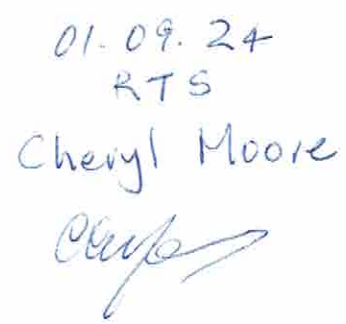 01.09.24
RTS
Cheryl Moore